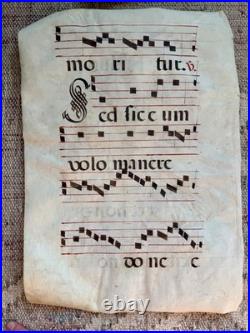 mo ri tur. v.
Sed sic eum
volo manere
do nec